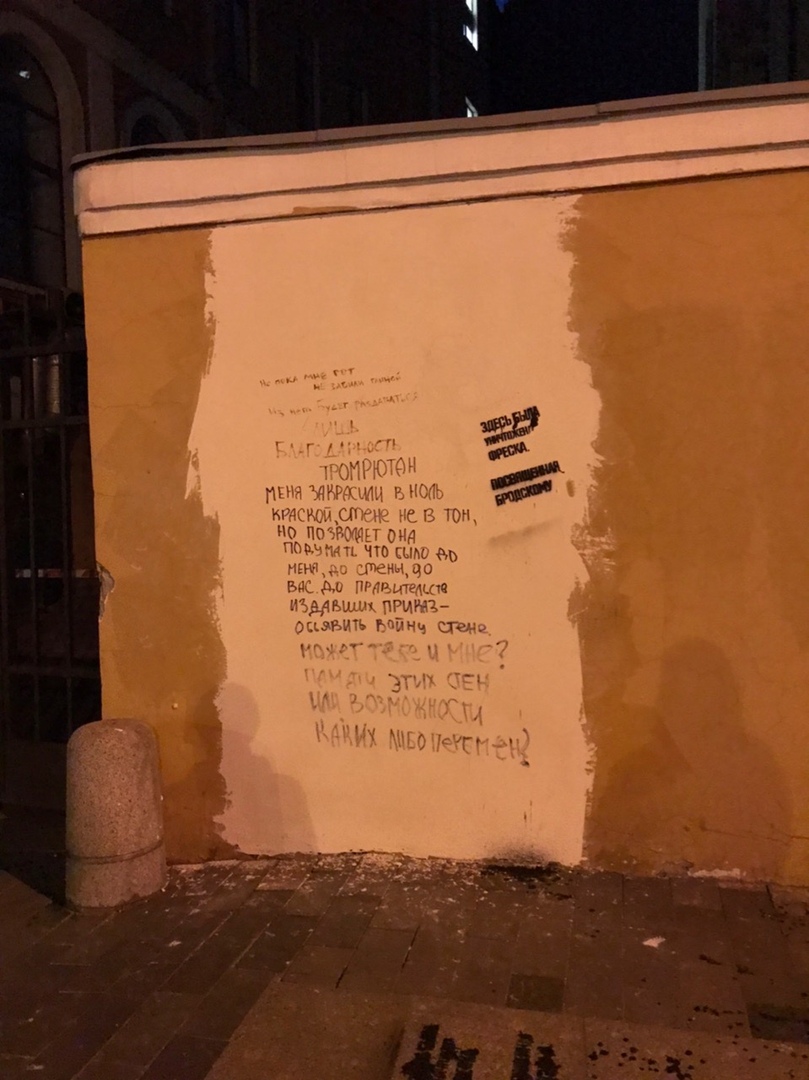 Но пока мне рот
не забили глиной
Из него будет раздаваться
ЛИШЬ
БЛАГОДАРНОСТЬ
ТРОМРЮТАН
МЕНЯ ЗАКРАСИЛИ В НОЛЬ
КРАСКОЙ, СТЕНЕ НЕ В ТОН,
НО ПОЗВОЛЯЕТ ОНА
ПОДУМАТЬ ЧТО БЫЛО ДО
МЕНЯ, ДО СТЕНЫ, ДО
ВАС. ДО ПРАВИТЕЛЬСТВ
ИЗДАВШИХ ПРИКАЗ –
ОБЪЯВИТЬ ВОЙНУ СТЕНЕ.
МОЖЕТ ТЕБЕ И МНЕ?
ПАМЯТИ ЭТИХ СТЕН
ИЛИ ВОЗМОЖНОСТИ
КАКИХ ЛИБО ПЕРЕМЕН?
ЗДЕСЬ БЫЛА
УНИЧТОЖЕНА
ФРЕСКА,
ПОСВЯЩЕННАЯ
БРОДСКОМУ